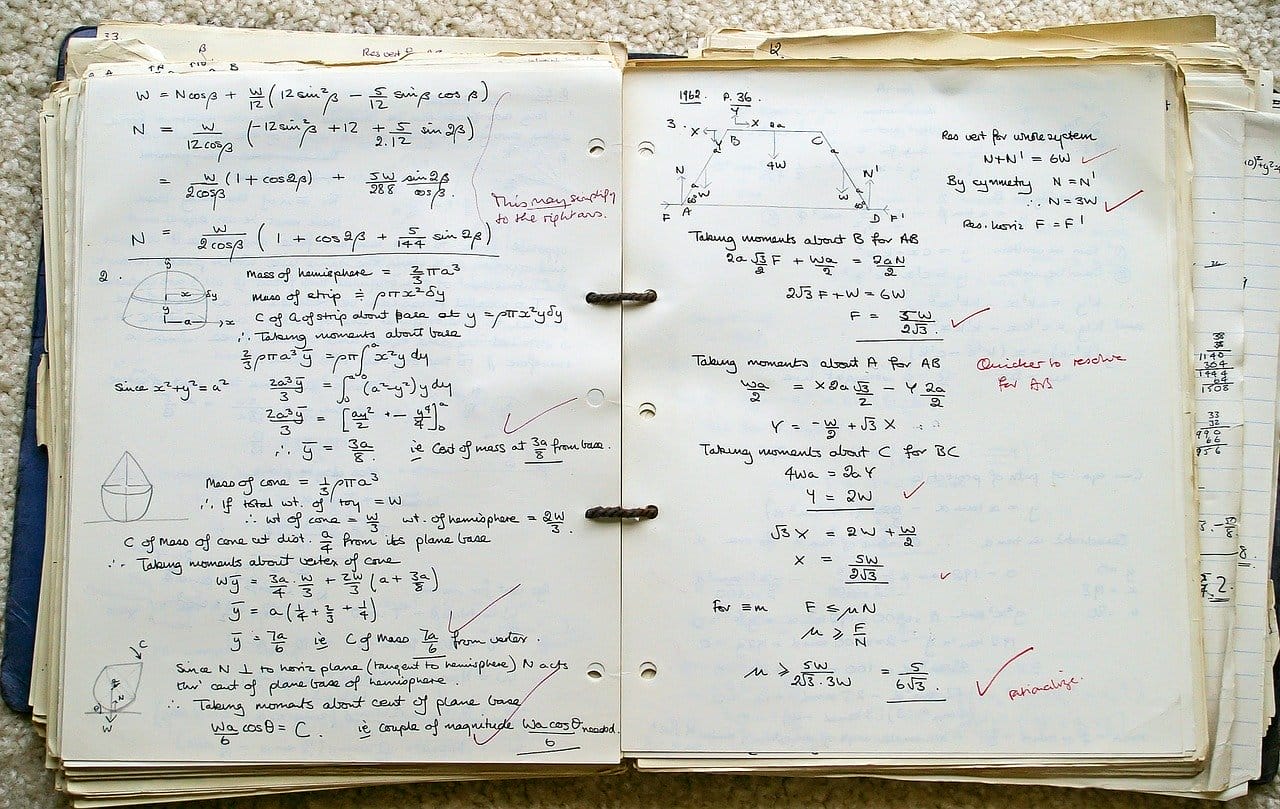 33
β
Res vert
W = Ncosβ + W/12 (12sin²β − 5/12 sinβ cosβ)
N = W/12cosβ (−12sin²β + 12 + 5/2.12 sin2β)
= W/2cosβ (1 + cos2β) + 5W/288 sin2β/cosβ.
This may simplify
to the right ans.
N = W/2cosβ (1 + cos2β + 5/144 sin2β)
2.
y
x δy
y
a x
Mass of hemisphere = 2/3 πa³
Mass of strip ≏ ρπx²δy
C of G of strip about base at y = ρπx²yδy
∴ Taking moments about base
2/3 ρπa³ȳ = ρπ∫₀ᵃ x²y dy
Since x²+y²=a² 2a³ȳ/3 = ∫₀ᵃ (a²−y²)y dy
2a³ȳ/3 = [ay²/2 + − y⁴/4]₀ᵃ
∴ ȳ = 3a/8 ie Cent of mass at 3a/8 from base.
Mass of cone = 1/3 ρπa³
∴ If total wt. of toy = W
∴ wt of cone = W/3 wt. of hemisphere = 2W/3.
C of Mass of cone at dist. a/4 from its plane base
∴ Taking moments about vertex of cone
Wȳ = 3a/4 . W/3 + 2W/3 (a + 3a/8)
ȳ = a(1/4 + 2/3 + 1/4)
ȳ = 7a/6 ie C of Mass 7a/6 from vertex.
C
N
θ
W
Since N ⊥ to horiz plane (tangent to hemisphere) N acts
thro' cent of plane base of hemisphere.
∴ Taking moments about cent of plane base
Wa/6 cosθ = C. ie couple of magnitude Wa cosθ/6 needed.
12
1962 P. 36.
3.
Y
X X 2a
Y B C
a a
4W
N a a N'
W W
60° 60°
F A D F'
Res vert for whole system
N+N' = 6W
By symmetry N = N'
∴ N = 3W
Res. horiz F = F'
Taking moments about B for AB
2a√3/2 F + Wa/2 = 2aN/2
2√3 F + W = 6W
F = 5W/2√3.
Taking moments about A for AB
Quicker to resolve
for AB
Wa/2 = X2a√3/2 − Y 2a/2
Y = −W/2 + √3 X
Taking moments about C for BC
4Wa = 2aY
Y = 2W
√3 X = 2W + W/2
X = 5W/2√3
For ≡m F ≤ μN
μ ≥ F/N
μ ≥ 5W/2√3.3W = 5/6√3.
rationalize.
38
38
1140
304
1444
64
1508
33
32
990
66
956